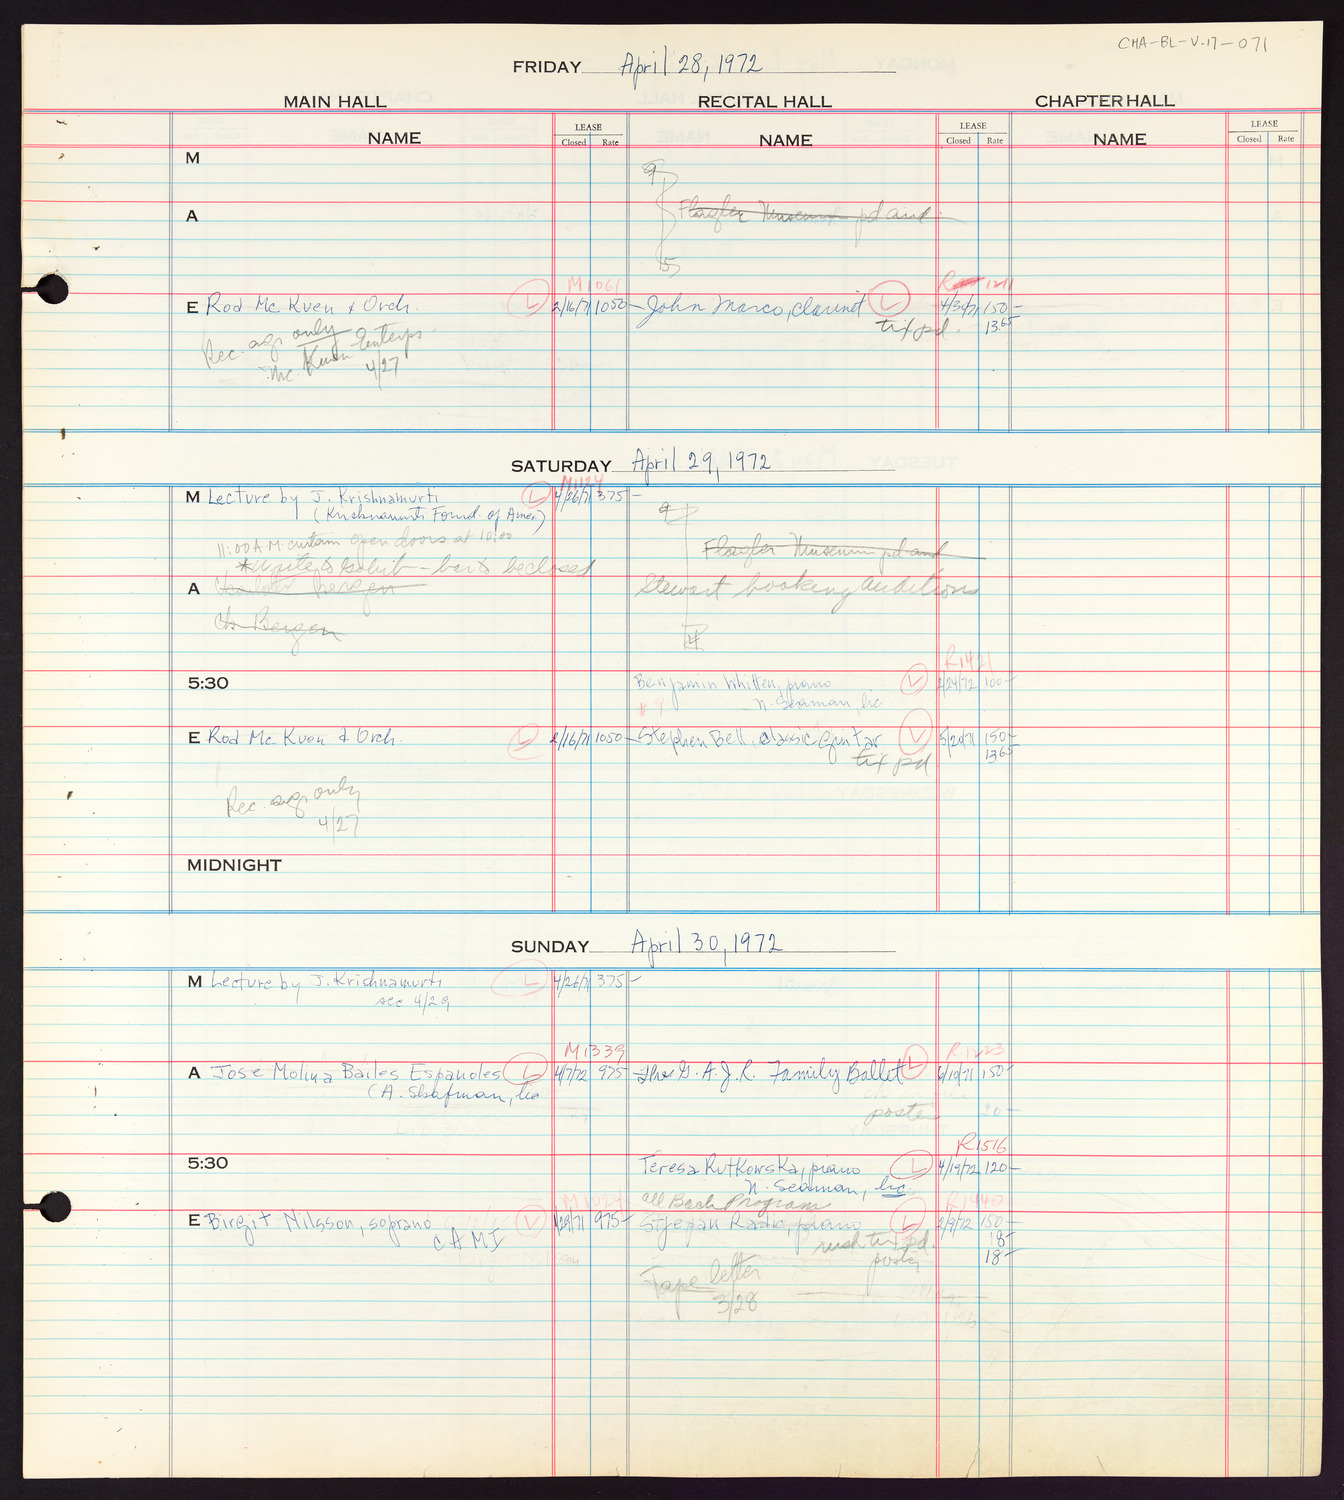 CHA-BL-V-17-071
FRIDAY April 28, 1972
MAIN HALL RECITAL HALL CHAPTER HALL
NAME LEASE Closed Rate NAME LEASE Closed Rate NAME LEASE Closed Rate
M 9
A Flagler Museum pd and
5
M1061 R 1211
E Rod Mc Kuen & Orch. L 2/16/71 1050- John Marco, clarinet L 4/30/71 150-
Rec. agr. only tix pd. 13.65
Mc. Kuen Enterps.
4/27
SATURDAY April 29, 1972
M1124
M Lecture by J. Krishnamurti L 4/26/71 375-
(Krishnamurti Found. of Amer.) 9
11:00 A.M. curtain open doors at 10:00
Flagler Museum pd and
be closed
A Charlotte Bergen Stewart booking auditions
Ch Bergen
R1421
5:30 Benjamin Whitten, piano L 2/24/72 100-
N. Seaman, lic.
E Rod Mc Kuen & Orch. L 2/16/71 1050- Stephen Bell, classic guitar L 5/20/71 150-
tix pd 13.65
Rec. agr. only
4/27
MIDNIGHT
SUNDAY April 30, 1972
M Lecture by J. Krishnamurti L 4/26/71 375-
see 4/29
M1339 R1223
A Jose Molina Bailes Espanoles L 4/7/72 975- The D.A.J.R. Family Ballet L 6/10/71 150-
(A. Shafman, lic
poster 20-
R1516
5:30 Teresa Rutkowska, piano L 4/19/72 120-
N. Seaman, lic.
M1024 all Bach Program R1440
E Birgit Nilsson, soprano L 1/29/71 975- Stjepan Radic, piano L 2/9/72 150-
CAMI rush tix pd. 18-
poster 18-
Tape letter
3/28